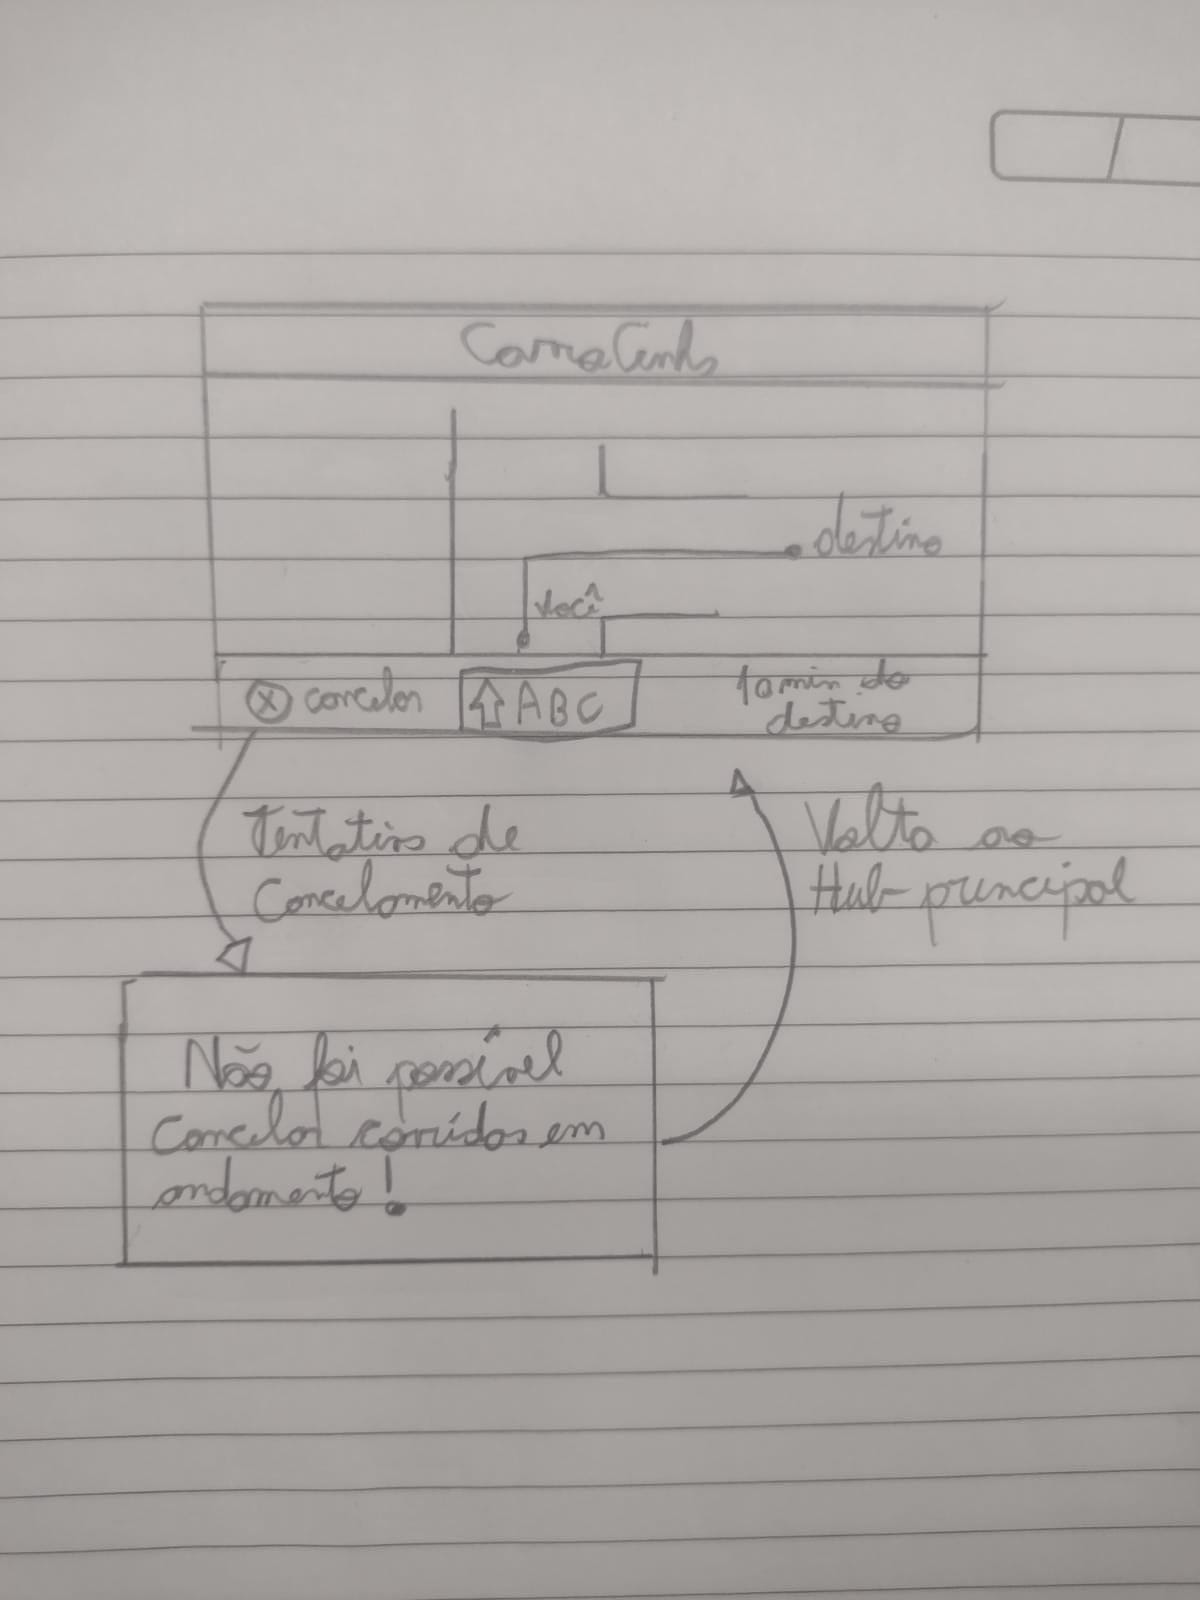 Carro Cinho
destino
você
X cancelar
ABC
10 min do
destino
Tentativa de
Cancelamento
Volta ao
Hub principal
Não foi possível
Cancelar corridas em
andamento!